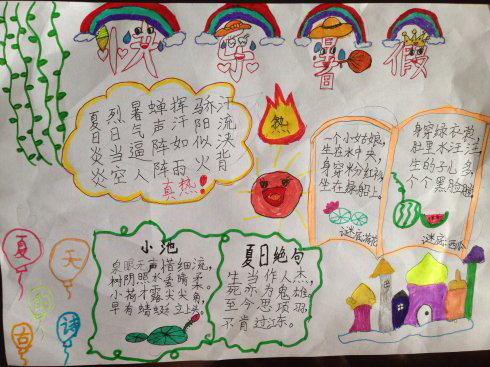 快乐暑假
夏日炎炎
烈日当空
暑气逼人
蝉声阵阵
挥汗如雨
骄阳似火
汗流浃背
真热！
热
一个小姑娘，
生在水中央，
身穿粉红衫，
坐在绿船上。
谜底：荷花
身穿绿衣裳，
肚里水汪汪，
生的子儿多，
个个黑脸膛。
谜底：西瓜
夏天
古诗
小池
泉眼无声惜细流，
树阴照水爱晴柔。
小荷才露尖尖角，
早有蜻蜓立上头。
夏日绝句
生当作人杰，
死亦为鬼雄。
至今思项羽，
不肯过江东。